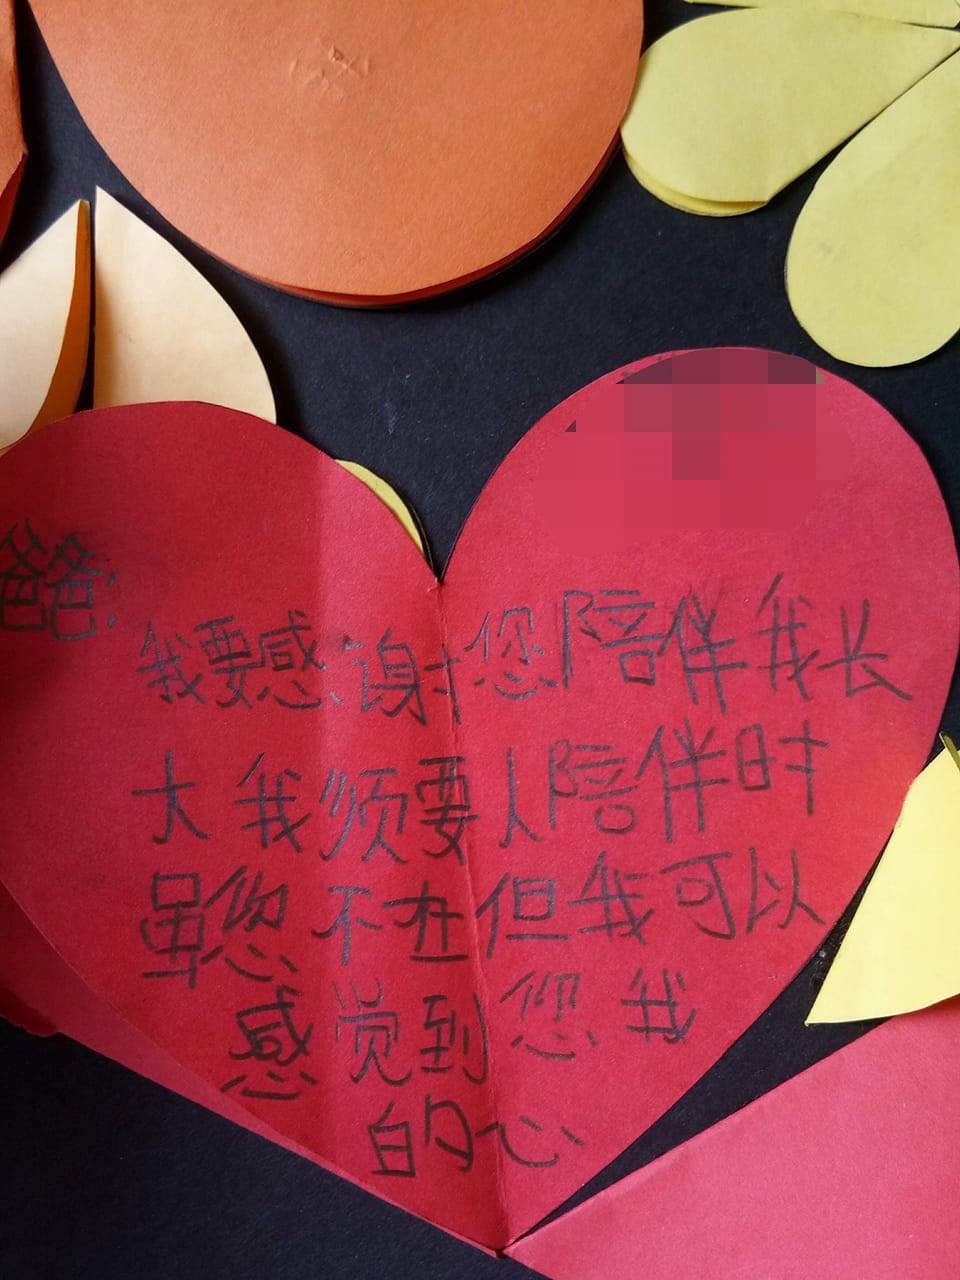 爸爸:
我要感谢您陪伴我长
大我须要人陪伴时
虽您不在但我可以
感觉到您我
的心